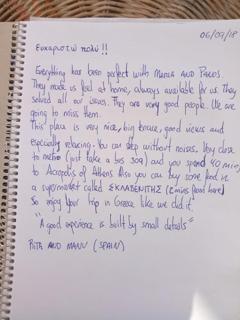 06/09/18
Ευχαριστώ πολύ!!
Everything has been perfect with Maria and Pakos.
They made us feel at home, always available for us. They
solved all our issues. They are very good people. We are
going to miss them.
This place is very nice, big terrace, good views and
especially relaxing. You can sleep without noises. Very close
to metro (just take a bus 309) and you spend 40 min
to Acropolis of Athens. Also you can buy some food in
a supermarket called ΣΚΛΑΒΕΝΙΤΗΣ (2 mins from here)
So enjoy your trip in Greece like we did it
"A good experience is built by small details"
Rita and Manu (Spain)